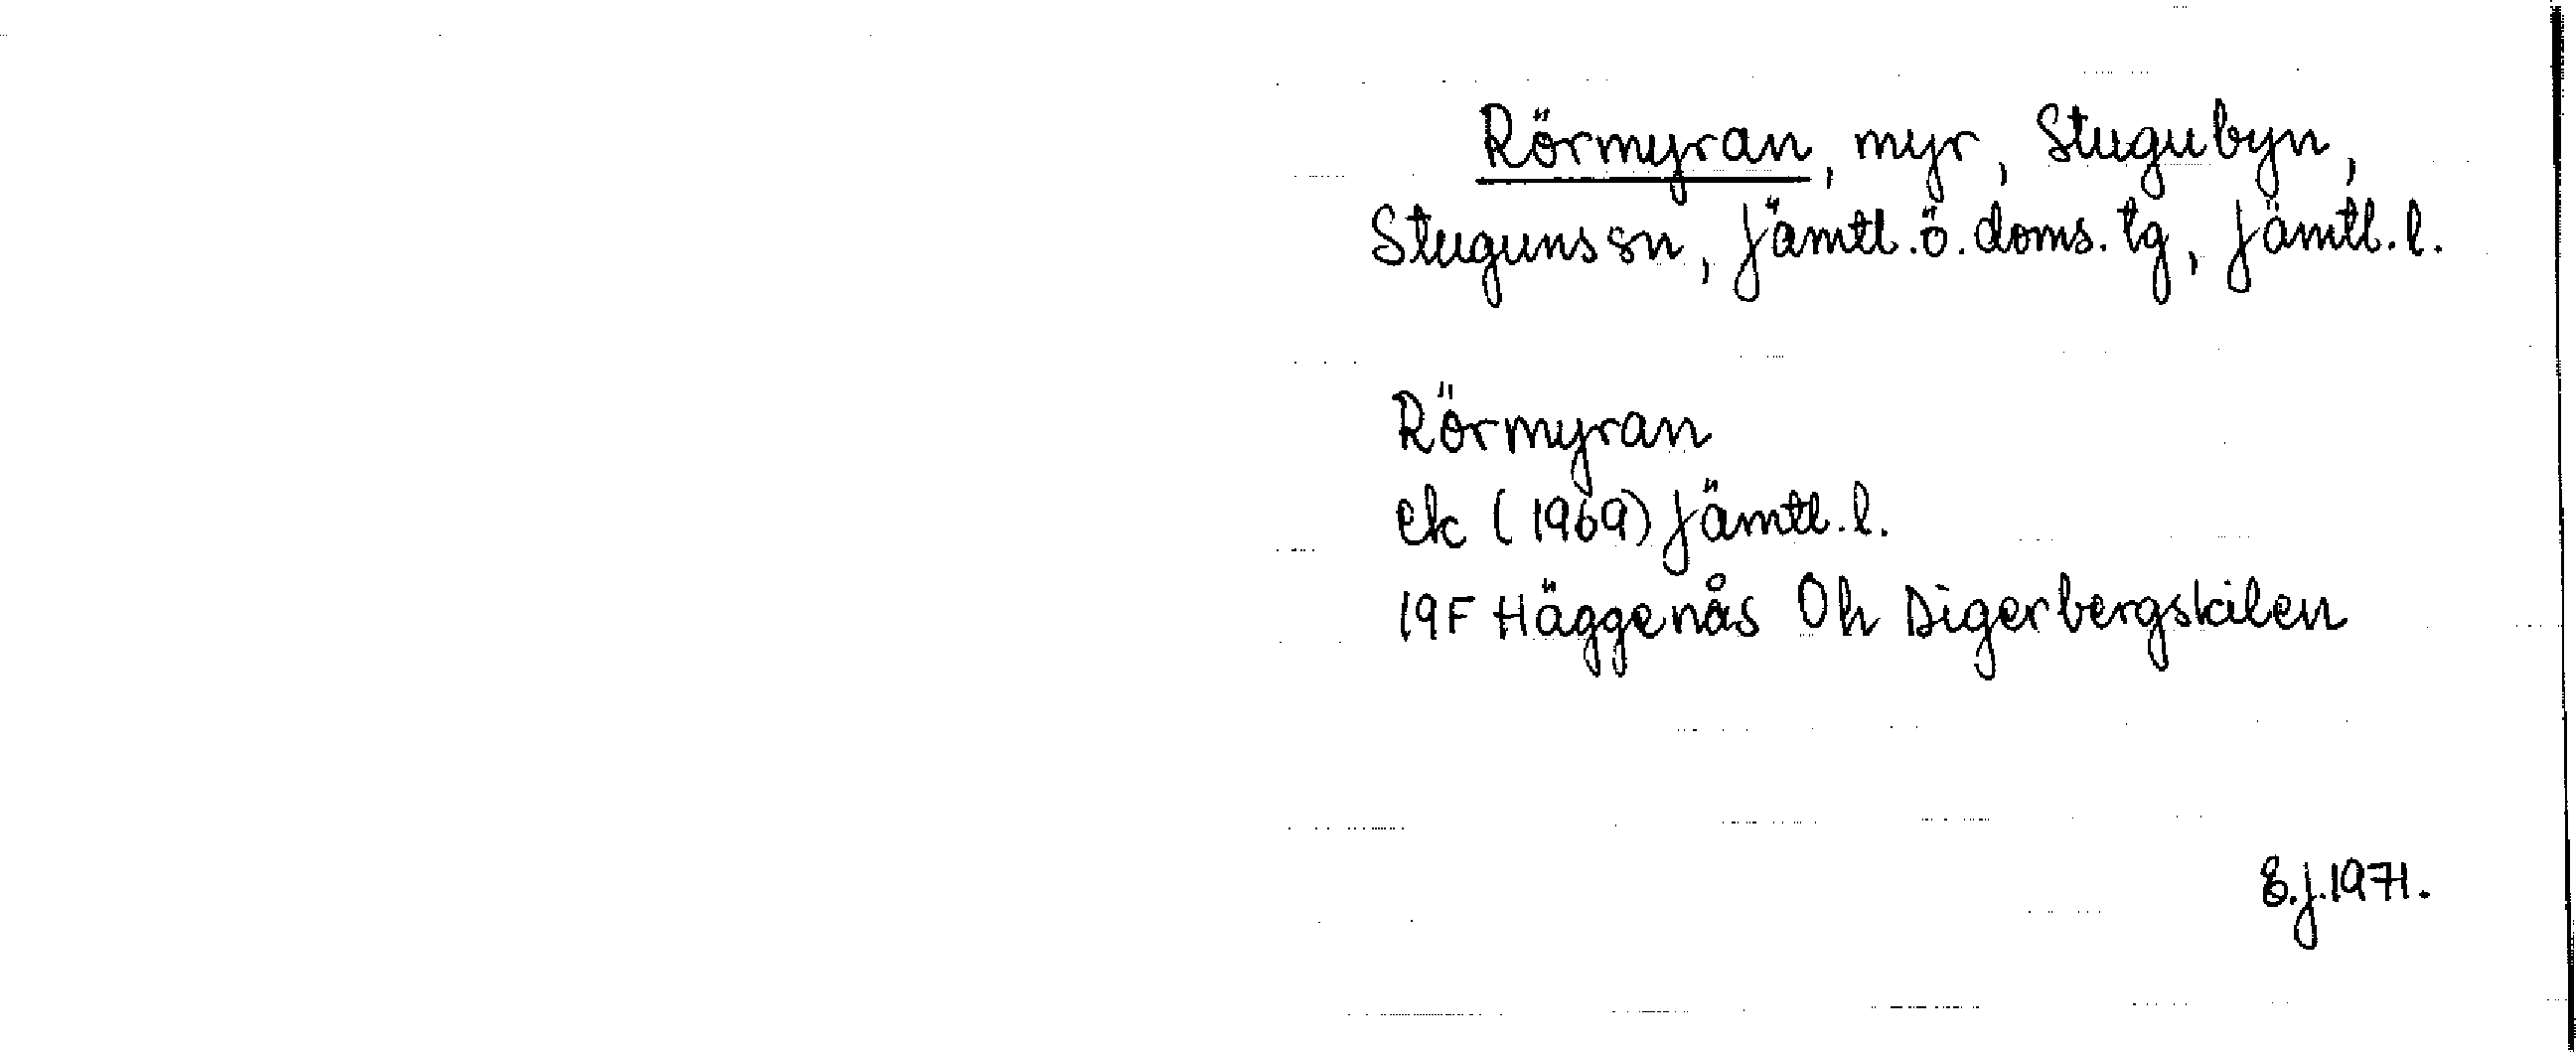 Rörmyran, myr, Stugubyn,
Stuguns sn, Jämtl. ö. doms. tg, Jämtl. l.
Rörmyran
ek (1969) Jämtl. l.
19F Häggenås 0h Digerbergskilen
E.J. 1971.